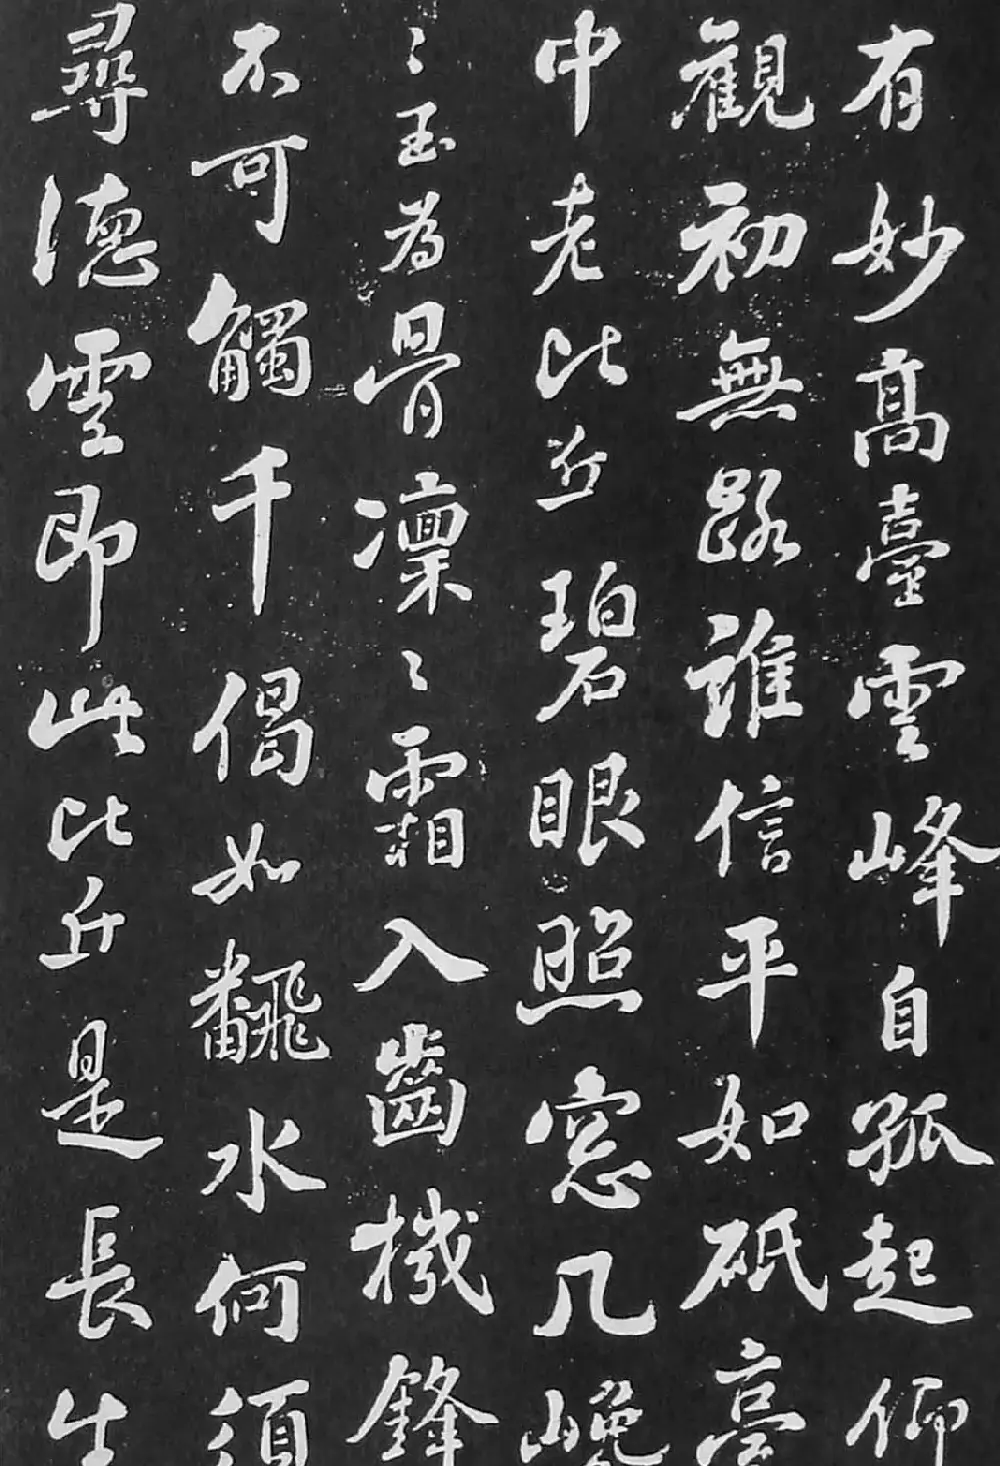 有妙高臺雲峰自孤起仰
觀初無路誰信平如砥臺
中老比丘碧眼照窓几巉
〻玉為骨凜〻霜入齒機鋒
不可觸千偈如翻水何須
尋德雲即此比丘是長生